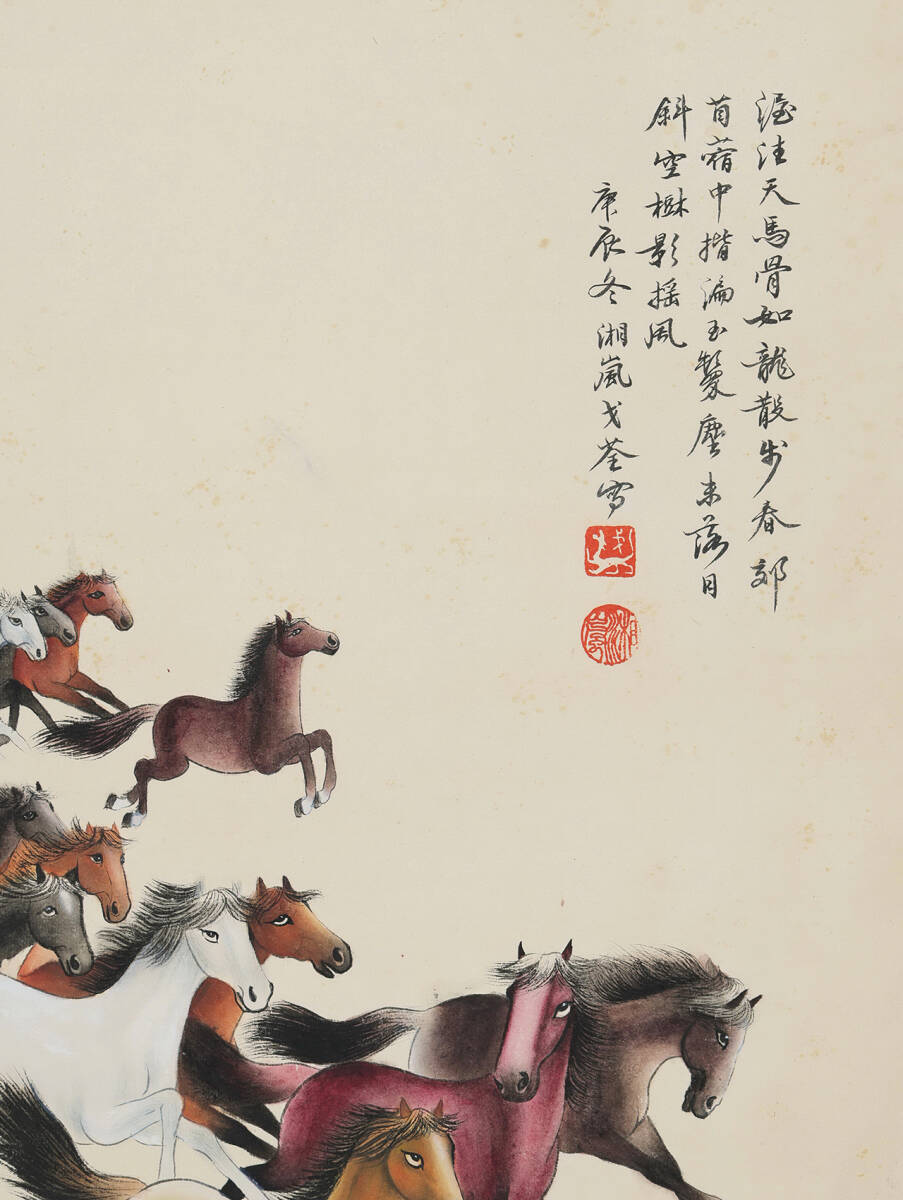 渥洼天馬骨如龍散步春郊
苜蓿中揩遍玉鬉塵未落日
斜空樹影搖風
庚辰冬湘嵐戈荃寫
戈荃
湘嵐